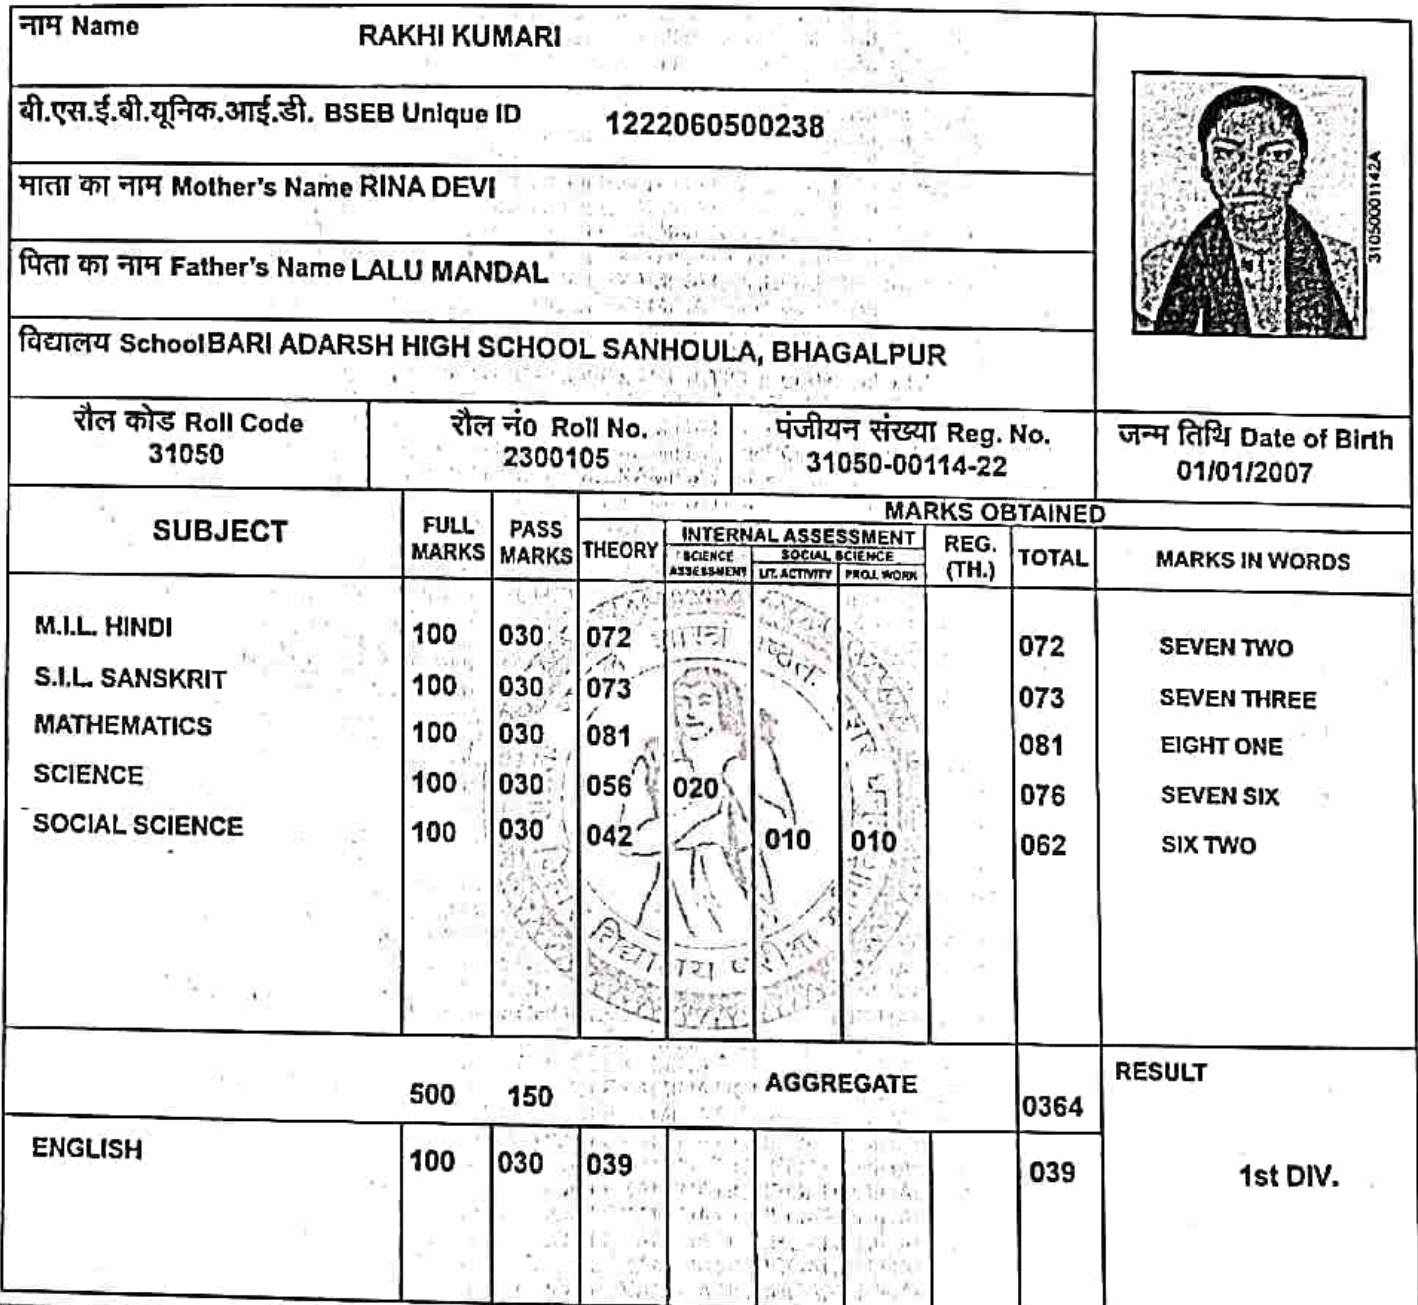 नाम Name RAKHI KUMARI
बी.एस.ई.बी.यूनिक.आई.डी. BSEB Unique ID 1222060500238
माता का नाम Mother's Name RINA DEVI
पिता का नाम Father's Name LALU MANDAL
विद्यालय School BARI ADARSH HIGH SCHOOL SANHOULA, BHAGALPUR
31050001142A
रौल कोड Roll Code रौल नं० Roll No. पंजीयन संख्या Reg. No. जन्म तिथि Date of Birth
31050 2300105 31050-00114-22 01/01/2007
SUBJECT FULL MARKS PASS MARKS MARKS OBTAINED
THEORY INTERNAL ASSESSMENT REG. (TH.) TOTAL MARKS IN WORDS
SCIENCE ASSESSMENT SOCIAL SCIENCE
LIT. ACTIVITY PROJ. WORK
M.I.L. HINDI 100 030 072 072 SEVEN TWO
S.I.L. SANSKRIT 100 030 073 073 SEVEN THREE
MATHEMATICS 100 030 081 081 EIGHT ONE
SCIENCE 100 030 056 020 076 SEVEN SIX
SOCIAL SCIENCE 100 030 042 010 010 062 SIX TWO
500 150 AGGREGATE 0364 RESULT
ENGLISH 100 030 039 039 1st DIV.